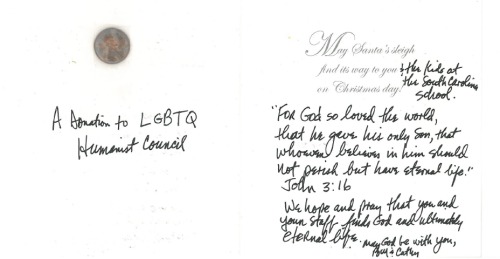 A Donation to LGBTQ
Humanist Council
May Santa's sleigh
find its way to you & the kids at
on Christmas day! the South Carolina
school.
"For God so loved the world,
that he gave his only Son, that
whoever believes in him should
not perish but have eternal life."
John 3:16
We hope and pray that you and
your staff finds God and ultimately
eternal life. may God be with you,
& Cathy